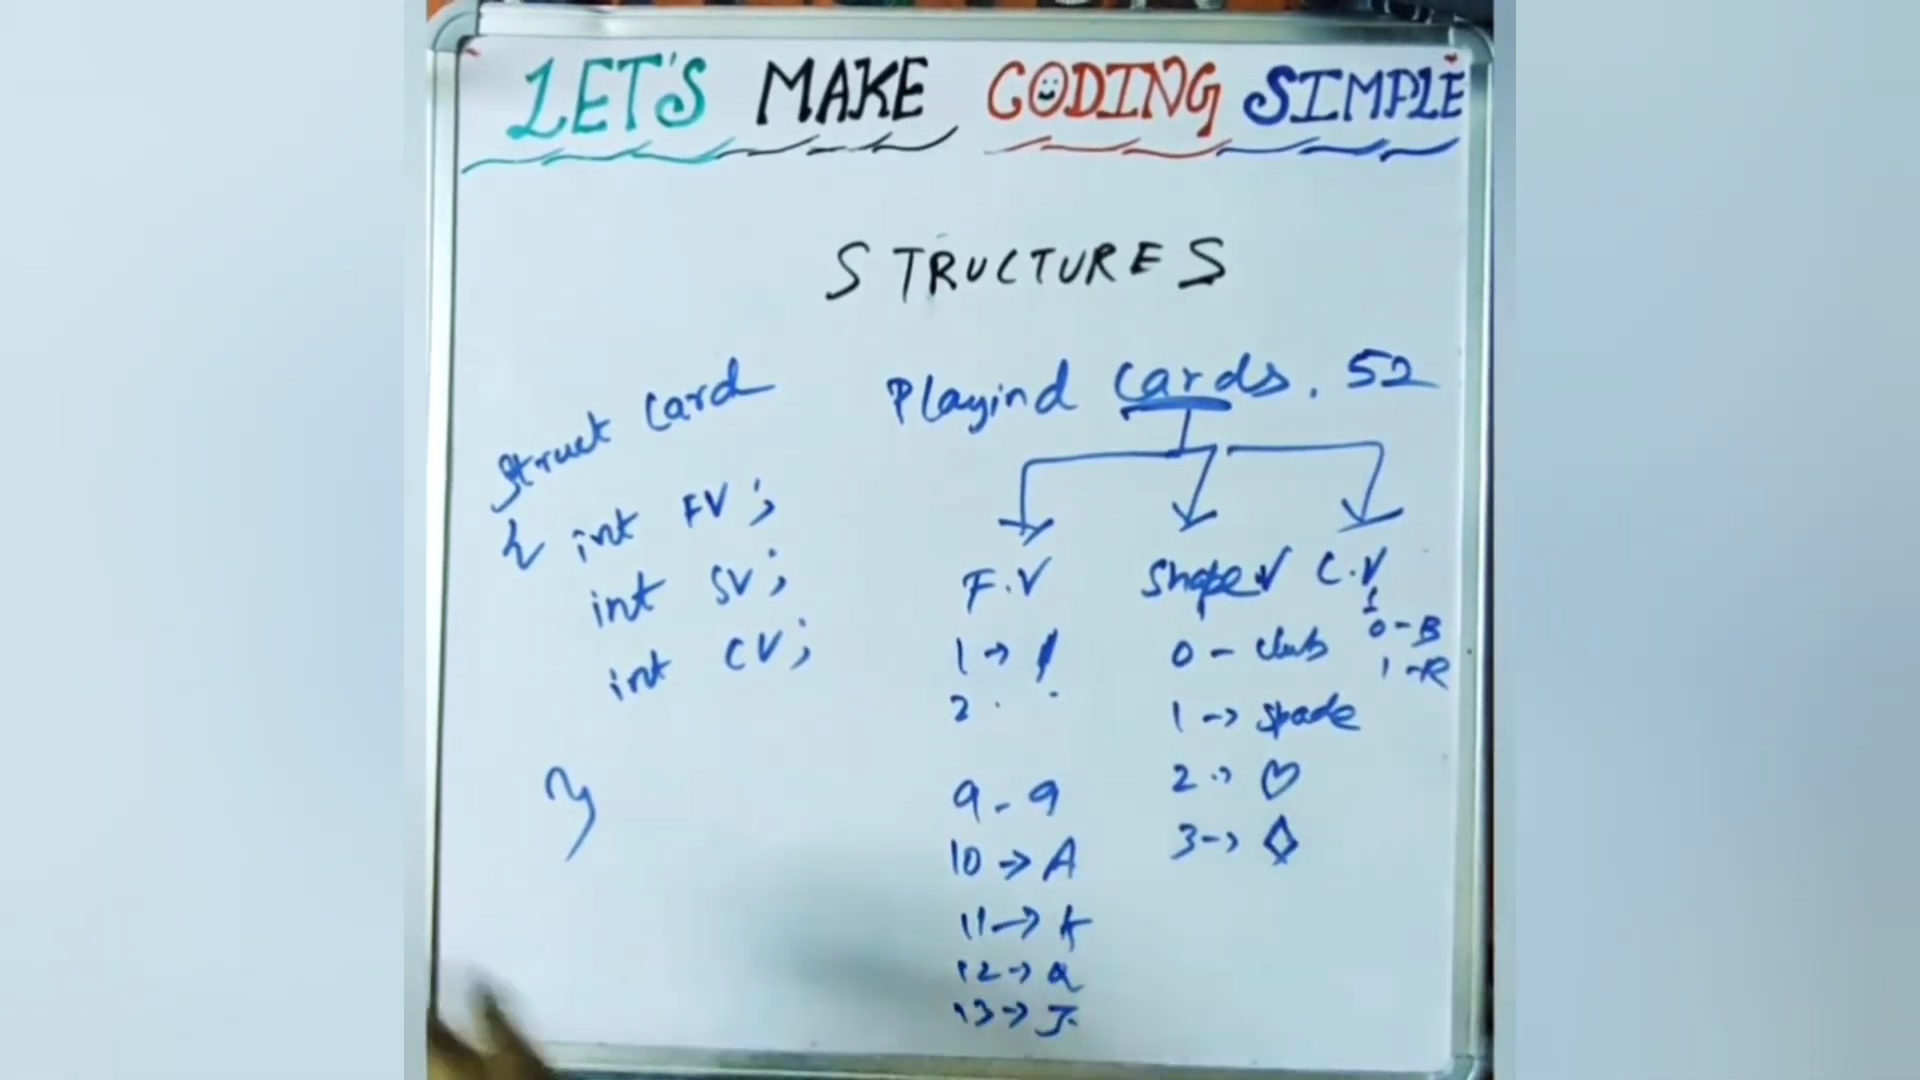 LET'S MAKE CODING SIMPLE
STRUCTURES
Struct Card
{ int FV;
int SV;
int CV;
}
Playind Cards. 52
F.V
1 →
2
9 - 9
10 → A
11 → K
12 → Q
13 → J
Shape V
0 - club
1 → spade
2 → ♡
3 → ◇
C.V
0 - B
1 - R